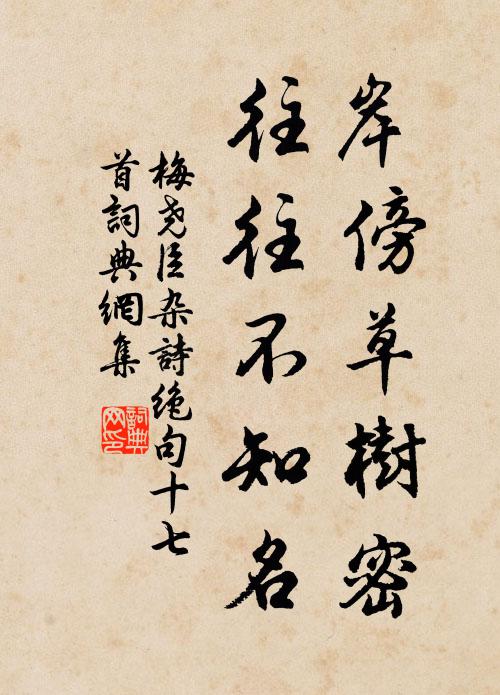 岸傍草樹密
往往不知名
梅堯臣杂詩絶句十七
首詞典網集
詞典
网印